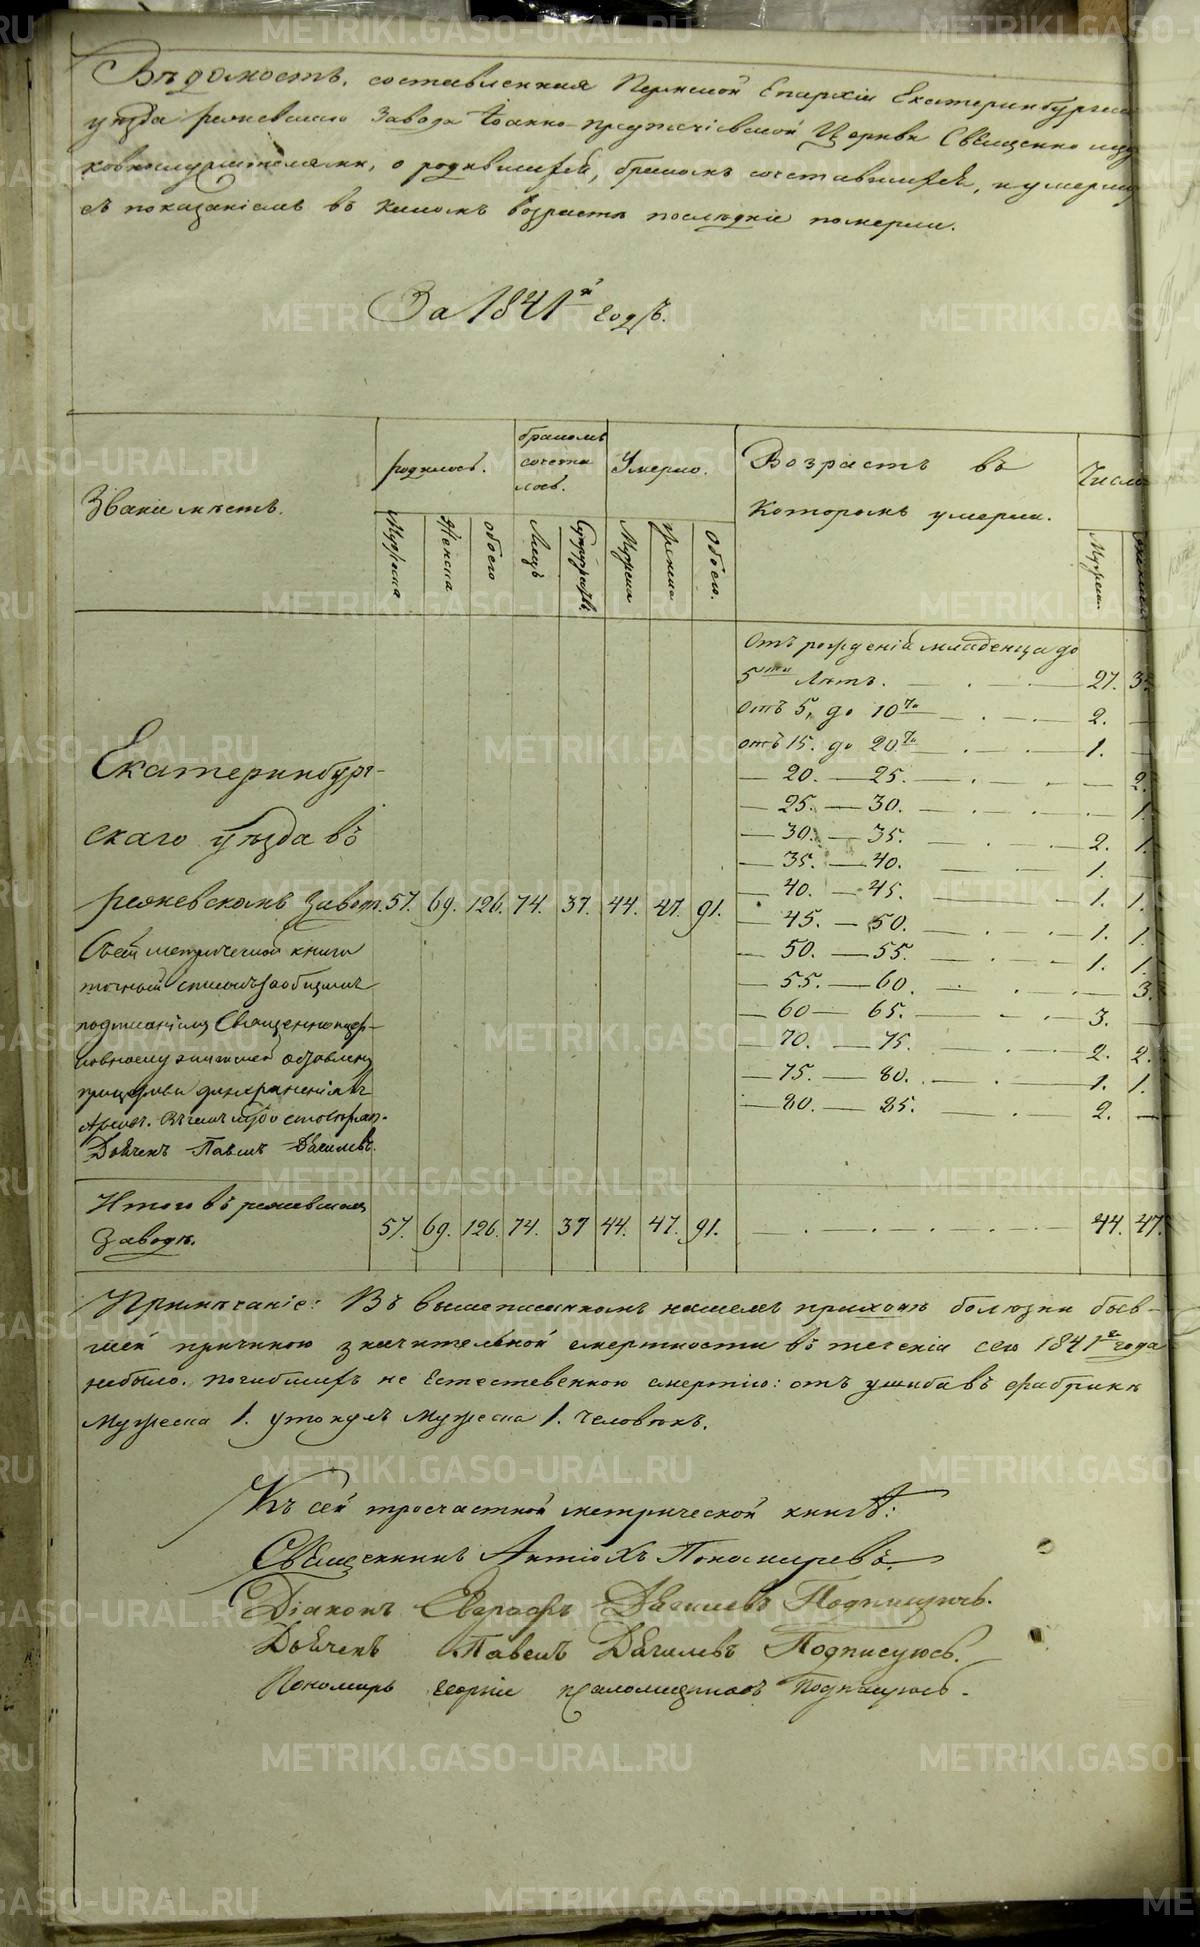 Вѣдомость, составленная Пермской Епархіи Екатеринбургска
уѣзда режевскаго Завода Іоанно-предтечіевской Церкви Священно цер
ковнослужителями, о родившихся, бракомъ сочетавшихся, и умерши
съ показаніемъ въ какомъ возрастѣ послѣдніе померли.
За 1841й годъ.
Званіе мѣстъ.
родилось.
бракомъ
сочета
лось.
Умерло.
Возрастъ въ
Которомъ умерли.
Число
Мужеска
Женска
обоего
Лицъ
Супружествъ
Мужска
женска
Обоего.
Мужска.
женска
Отъ рожденія младенца до
5ти Лѣтъ. — 27. 3
отъ 5, до 10ти — 2. —
отъ 15. до 20ти — 1. —
— 20. — 25. — — 2.
— 25. — 30. — 1.
— 30. — 35. — 2. 1.
— 35. — 40. — 1. —
— 40. — 45. — 1. 1.
— 45. — 50. — 1. 1.
— 50. — 55. — 1. 1.
— 55. — 60. — — 3.
— 60 — 65. — 3. —
— 70. — 75. — 2. 2.
— 75. — 80. — 1. 1.
— 80. — 85. — 2. —
Екатеринбург-
скаго уѣзда въ
режевскомъ Завод. 57. 69. 126. 74. 37. 44. 47. 91.
Сей метрической книги
точный списокъ за общимъ
подписаніемъ Священноцер-
ковнослужителей оставленъ
при церкви для храненія въ
Архивѣ. Въ чемъ
Дьячекъ Павелъ Дягилевъ.
Итого въ режевскомъ
Заводѣ. 57. 69. 126. 74. 37 44. 47. 91. 44. 47.
Примѣчаніе: Въ вышеписанномъ нашемъ приходѣ болѣзни быв-
шей причиною значительной смертности въ теченіи сего 1841го года
небыло. погибшихъ не Естественною смертію: отъ ушиба въ фабрикѣ
Мужеска 1. утонулъ Мужеска 1. Человѣкъ.
Къ сей тросчастной метрической книгѣ:
Священникъ Антіохъ Пономаревъ.
Діаконъ Евграфъ Дягилевъ Подписуюсь.
Дьячекъ Павелъ Дягилевъ Подписуюсь.
Пономарь Георгій Подписуюсь.
METRIKI.GASO-URAL.RU